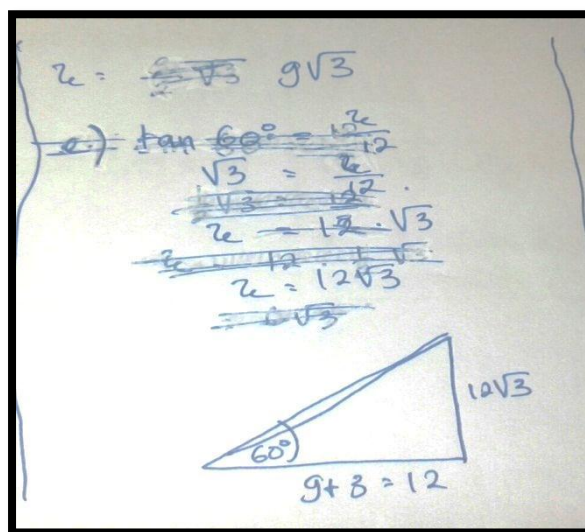 x = 9√3
e.) tan 60° = x/12
√3 = x/12
x = 12 . √3
x = 12√3
12√3
60°
9+3 = 12